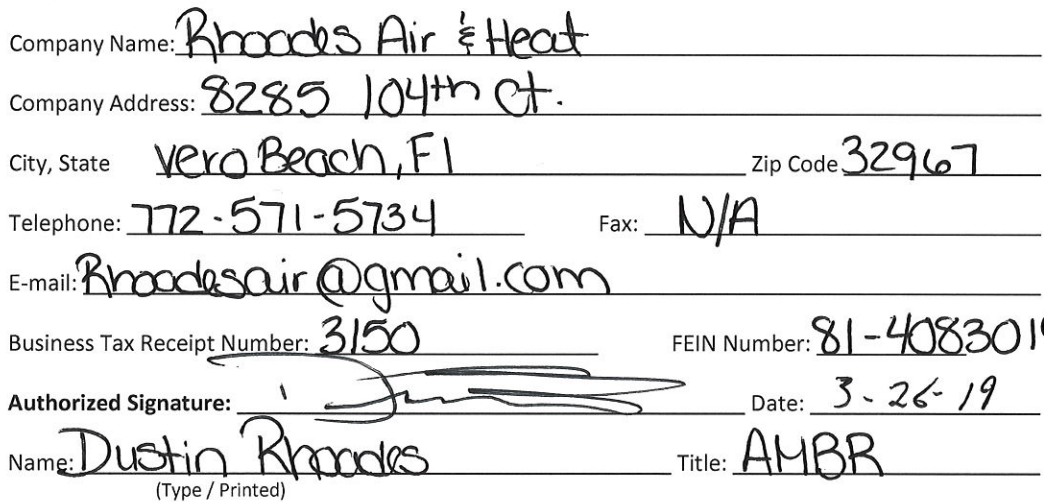 Company Name: Rhoades Air & Heat
Company Address: 8285 104th Ct.
City, State Vero Beach, Fl Zip Code 32967
Telephone: 772-571-5734 Fax: N/A
E-mail: Rhoadesair@gmail.com
Business Tax Receipt Number: 3150 FEIN Number: 81-408301
Authorized Signature: Date: 3-26-19
Name: Dustin Rhoades Title: AMBR
(Type / Printed)